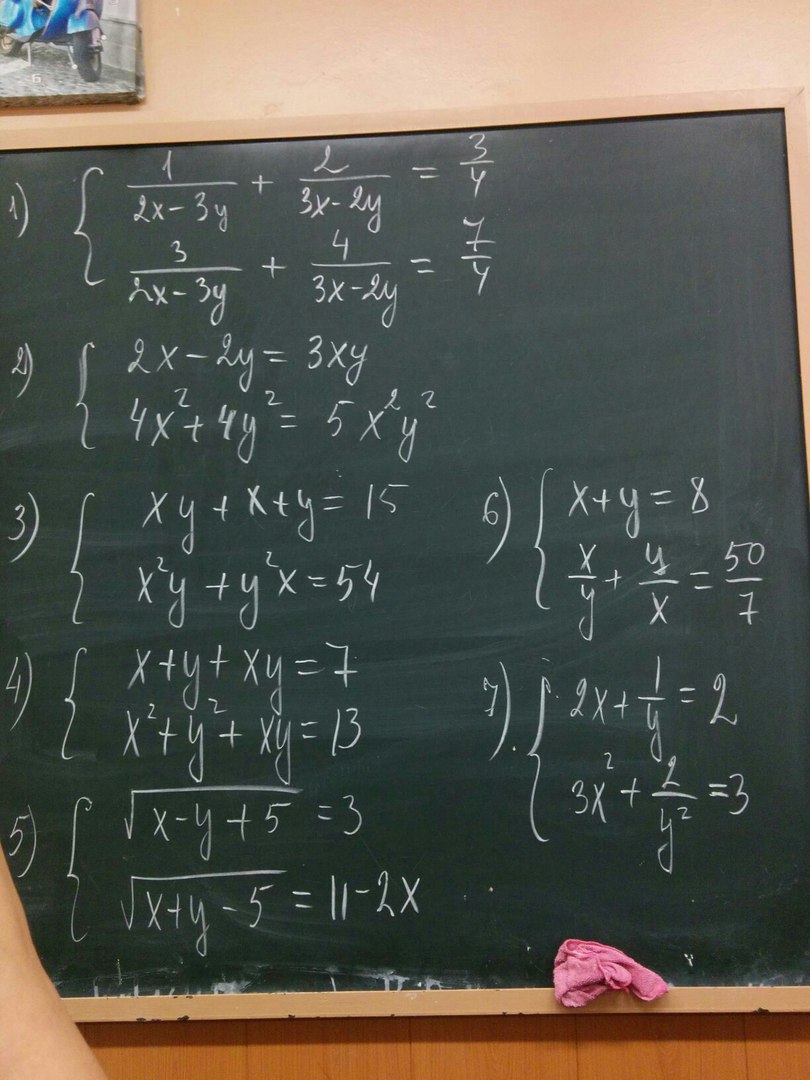 1) { 1/(2x-3y) + 2/(3x-2y) = 3/4
3/(2x-3y) + 4/(3x-2y) = 7/4
2) { 2x-2y = 3xy
4x²+4y² = 5x²y²
3) { xy+x+y = 15
x²y+y²x = 54
4) { x+y+xy = 7
x²+y²+xy = 13
5) { √(x-y+5) = 3
√(x+y-5) = 11-2x
6) { x+y = 8
x/y + y/x = 50/7
7) { 2x + 1/y = 2
3x² + 2/y² = 3